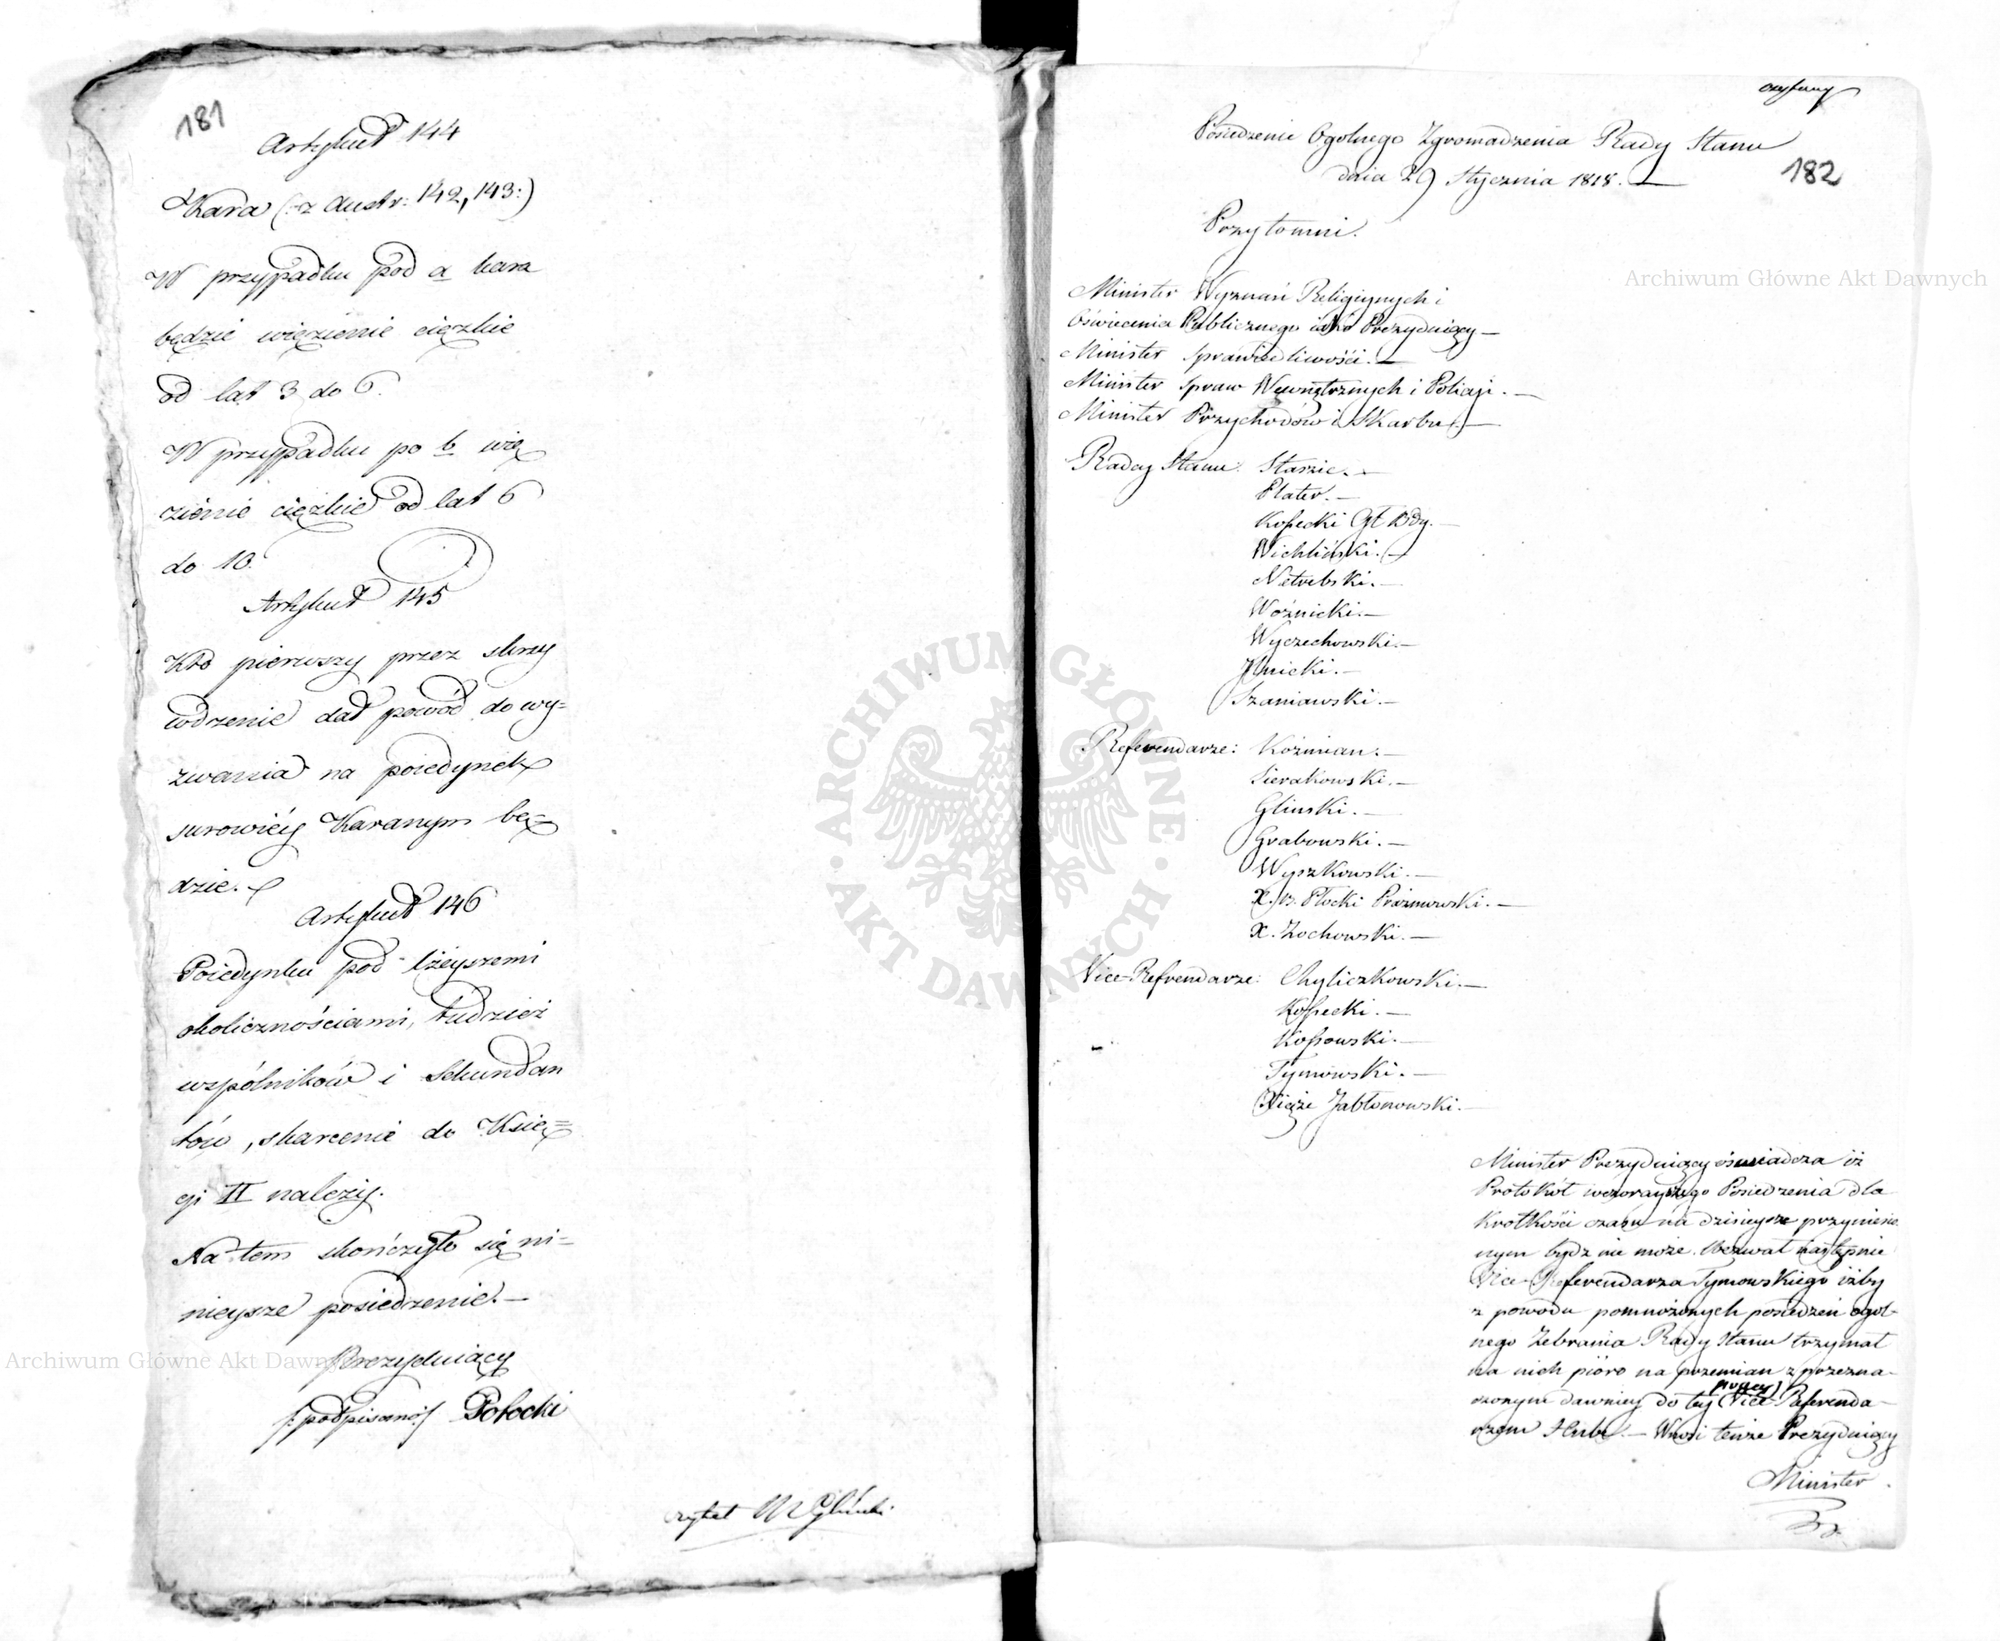 181
Artykuł 144
Kara (:z Austr: 142, 143:)
W przypadku pod a kara
będzie więzienie ciężkie
od lat 3 do 6.
W przypadku po b wię
zienie ciężkie od lat 6
do 10.
Artykuł 145
Kto pierwszy przez skrzy
wdzenie dał powód do wy=
zwania na poiedynek
surowiéy karanym bę=
dzie.
Artykuł 146
Poiedynku pod lżeyszemi
okolicznościami, tudzież
wspólników i Sekundan
tów, skarcenie do Księ=
gi II należy.
Na tem skończyło się ni=
nieysze posiedzenie.—
Prezyduiący
/:podpisano:/ Potocki
czytał M Gliński
182
Posiedzenie Ogolnego Zgromadzenia Rady Stanu
dnia 29 Stycznia 1818.—
Przytomni.
Minister Wyznań Religiynych i
Oświecenia Publicznego iako Prezyduiący—
Minister Sprawiedliwości.—
Minister Spraw Wewnętrznych i Policyi.—
Minister Przychodów i Skarbu.—
Radcy Stanu: Staszic.—
Plater.—
Kossecki Gł Bdy.—
Wichliński.—
Netrebski.—
Woźnicki.—
Wyczechowski.—
Ilnicki.—
Szaniawski.—
Referendarze: Koźmian.—
Sierakowski.—
Gliński.—
Grabowski.—
Wyszkowski.—
X. B. Płocki Prażmowski.—
X. Zochowski.—
Vice-Refrendarze: Chyliczkowski.—
Kossecki.—
Kossowski.—
Tymowski.—
Xiąże Jabłonowski.—
Minister Prezyduiący oświadcza iż
Protokół wczorayszego Posiedzenia dla
krotkości czasu na dzisieysze przyniesio
nym bydz nie może. Wezwał następnie
Vice-Referendarza Tymowskiego iżby
z powodu pomnożonych posiedzeń ogol-
nego Zebrania Rady Stanu trzymał
na nich pióro na przemian z przezna-
czonym dawniey do tey pracy Vice-Referenda-
rzem Hube.— Wnosi tenże Prezyduiący
Minister
Archiwum Główne Akt Dawnych
Archiwum Główne Akt Dawnych
ARCHIWUM GŁÓWNE · AKT DAWNYCH ·